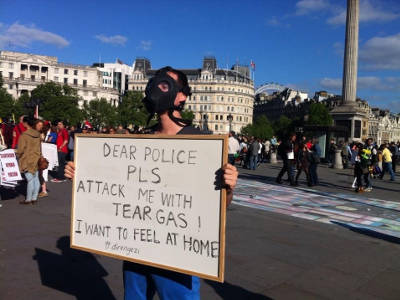 DEAR POLICE
PLS
ATTACK ME WITH
TEAR GAS !
I WANT TO FEEL AT HOME
#direngezi